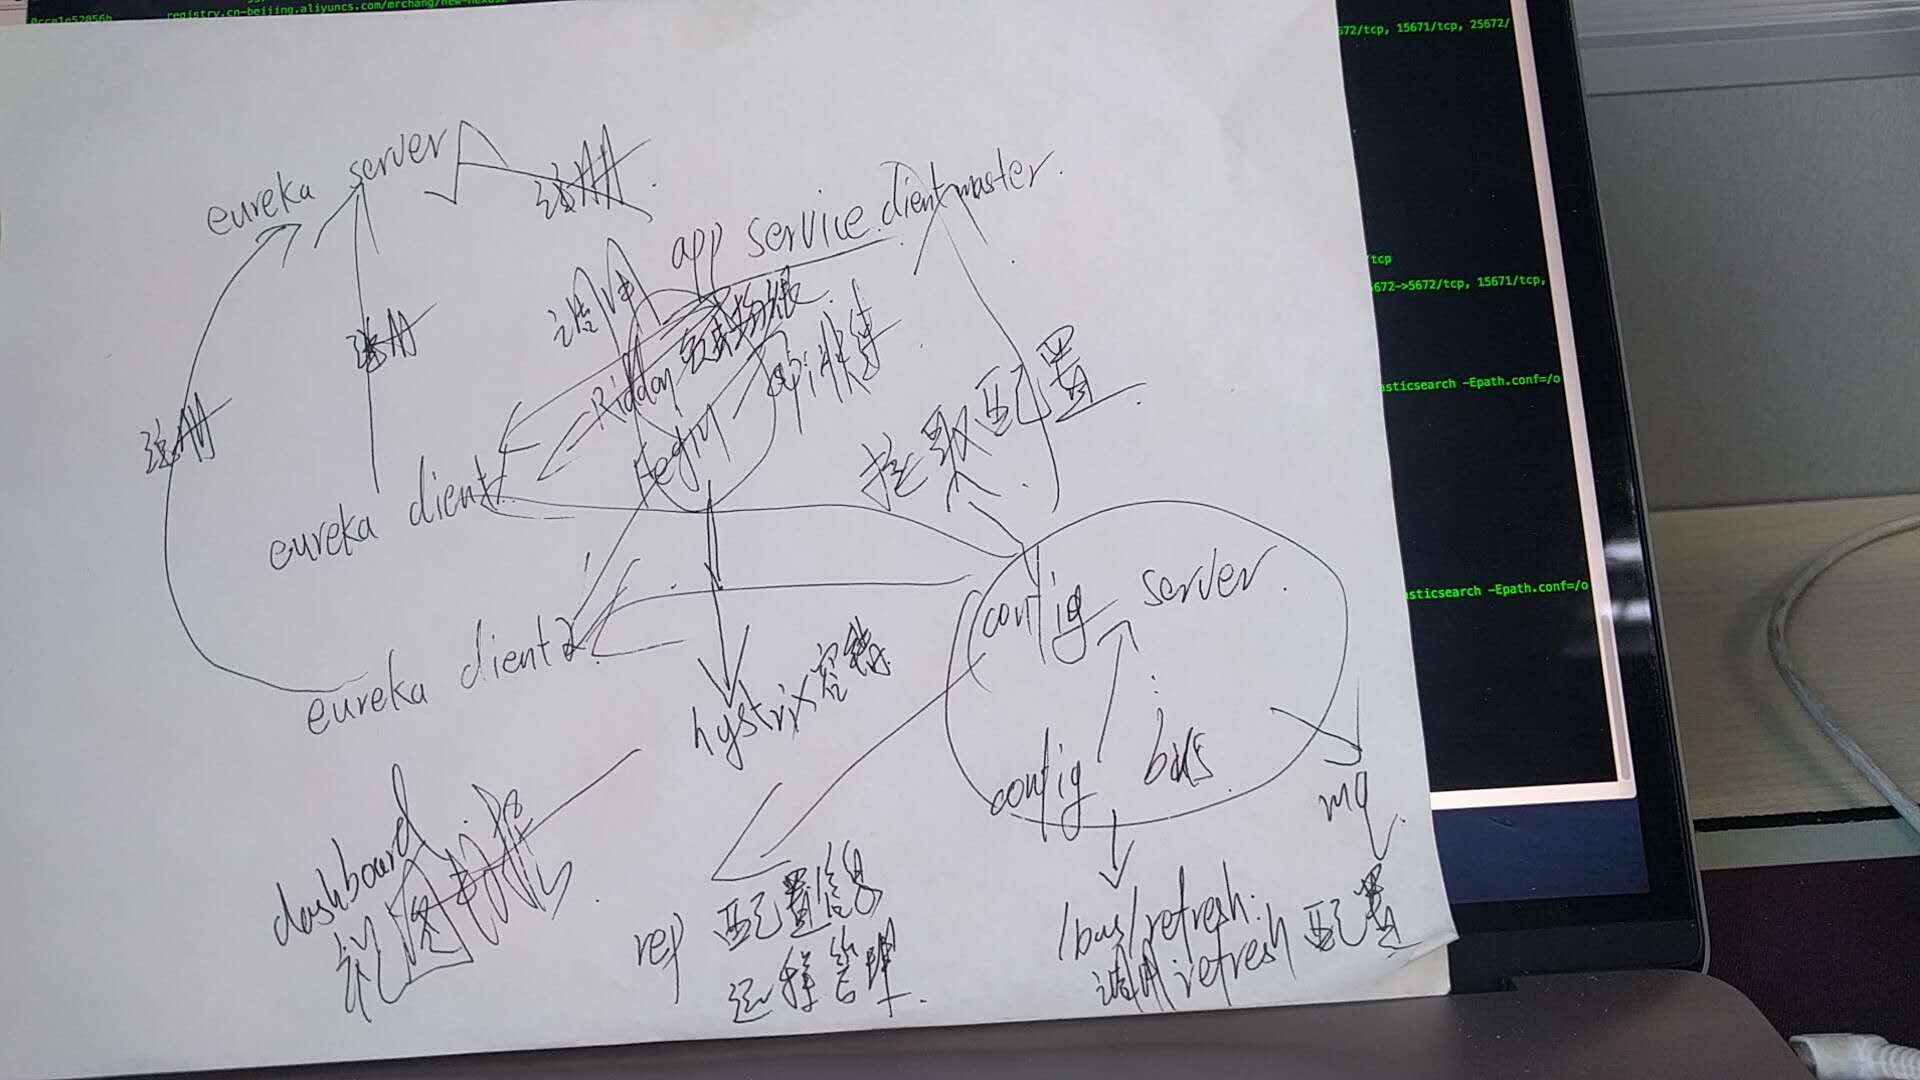 registry.cn-beijing.aliyuncs.com/mrchang/new-nexus2
672/tcp, 15671/tcp, 25672/
/tcp
5672->5672/tcp, 15671/tcp,
asticsearch -Epath.conf=/o
asticsearch -Epath.conf=/o
eureka server
注册
app service.client master.
调用
注册
Ribbon 负载均衡
api 快速
feign
注册
拉取配置
eureka client1
config server.
eureka client2
hystrix 容错
config bus
mq
dashboard
视图
rep 配置信息
远程管理.
/bus/refresh.
调用 refresh 配置